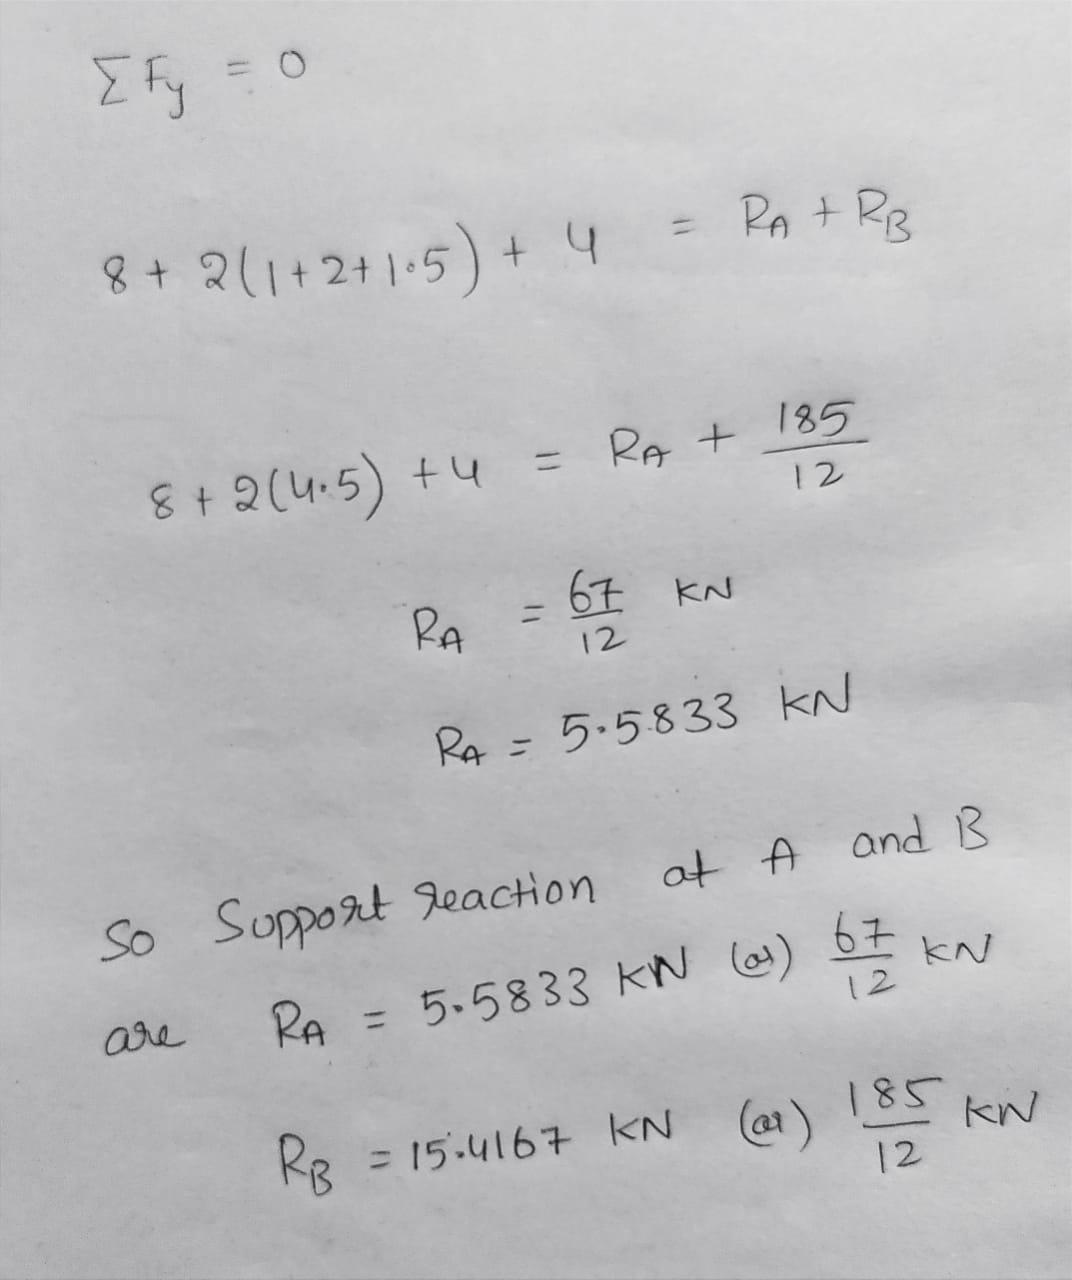 Σ Fy = 0
8 + 2(1+2+1.5) + 4 = RA + RB
8 + 2(4.5) + 4 = RA + 185/12
RA = 67/12 KN
RA = 5.5833 KN
So Support reaction at A and B
are RA = 5.5833 KN (or) 67/12 KN
RB = 15.4167 KN (or) 185/12 KN